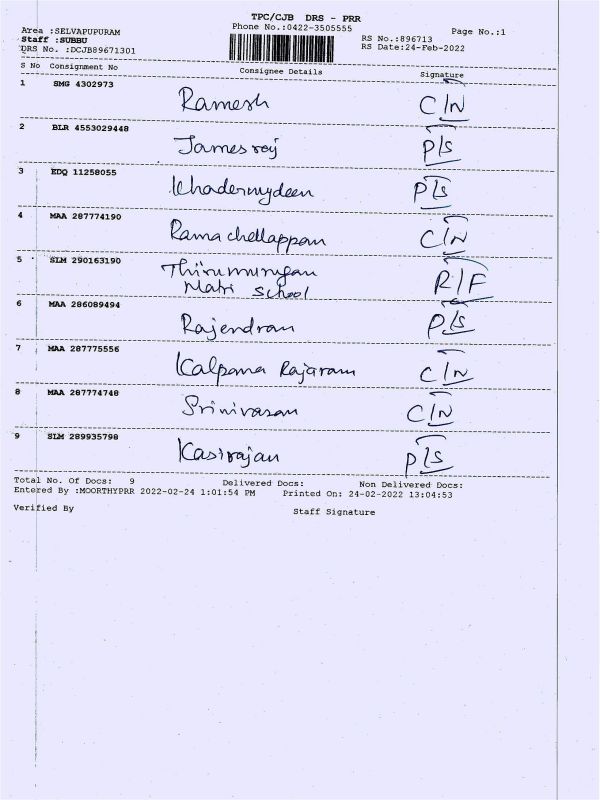 TPC/CJB DRS - PRR
Phone No.:0422-3505555
Page No.:1
Area :SELVAPUPURAM
Staff :SUBBU
DRS No. :DCJB89671301
RS No.:896713
RS Date:24-Feb-2022
S No Consignment No Consignee Details Signature
1 SMG 4302973 Ramesh C/N
2 BLR 4553029448 Jamesroj P/S
3 EDQ 11258055 Khadermydeen P/S
4 MAA 287774190 Rama chellappan C/N
5 SLM 290163190 Thirumurugan R/F
Matri School
6 MAA 286089494 Rajendran P/S
7 MAA 287775556 Kalpana Rajaram C/N
8 MAA 287774748 Srinivasan C/N
9 SLM 289935798 Kasirajan P/S
Total No. Of Docs: 9 Delivered Docs: Non Delivered Docs:
Entered By :MOORTHYPRR 2022-02-24 1:01:54 PM Printed On: 24-02-2022 13:04:53
Verified By Staff Signature